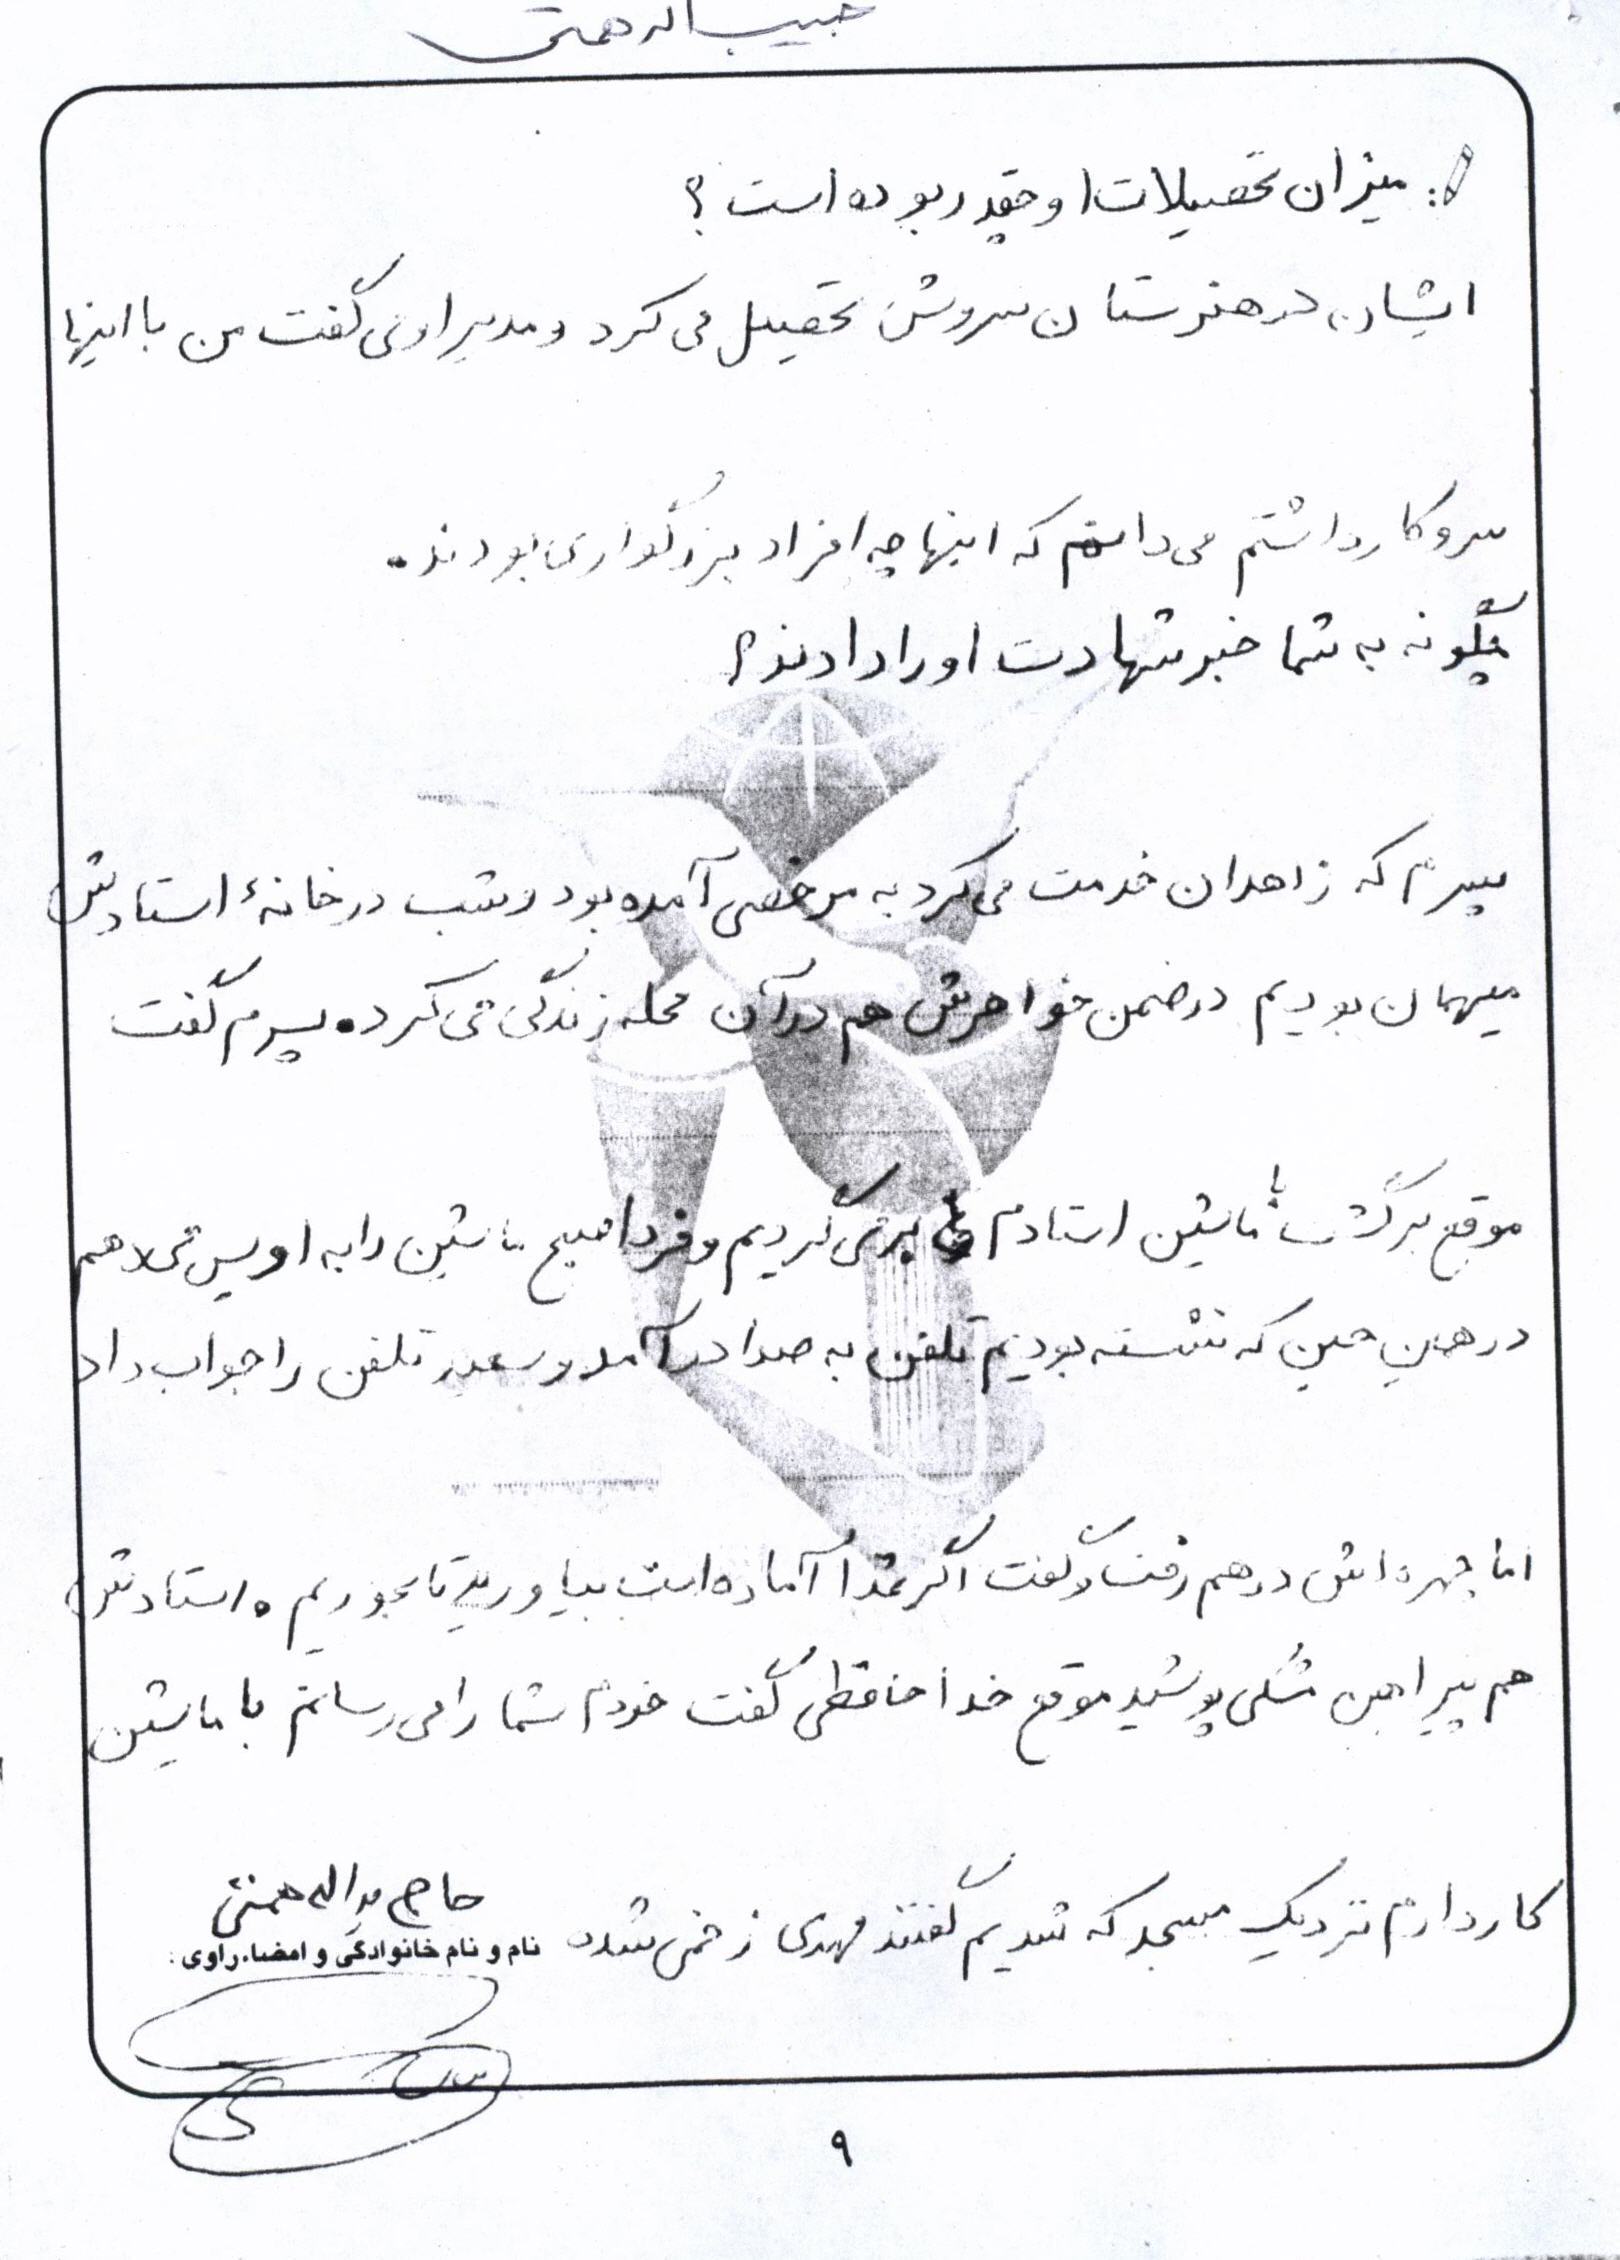 حبیب اله همتی
میزان تحصیلات او چقدر بوده است؟
ایشان در هنرستان سروش تحصیل می کرد و مدیر او می گفت من با اینها
سرو کار داشتم می دانم که اینها چه افراد بزرگواری بودند.
چگونه به شما خبر شهادت او را دادند؟
پسرم که زاهدان خدمت می کرد به مرخصی آمده بود و شب در خانهٔ استادش
میهمان بودیم در ضمن خواهرش هم در آن محله زندگی می کرد. پسرم گفت
موقع برگشت با ماشین استادم برمی گردیم و فردا صبح ماشین را به او پس می دهم
در همین حین که نشسته بودیم تلفن به صدا در آمد و سعید تلفن را جواب داد
اما چهره اش در هم رفت و گفت اگر غذا آماده است بیاورید تا بخوریم. استادش
هم پیراهن مشکی پوشید موقع خداحافظی گفت خودم شما را می رسانم با ماشین
کار دارم نزدیک مسجد که شدیم گفتند مهدی زخمی شده
حاج یداله همتی
نام و نام خانوادگی و امضاء راوی:
۹